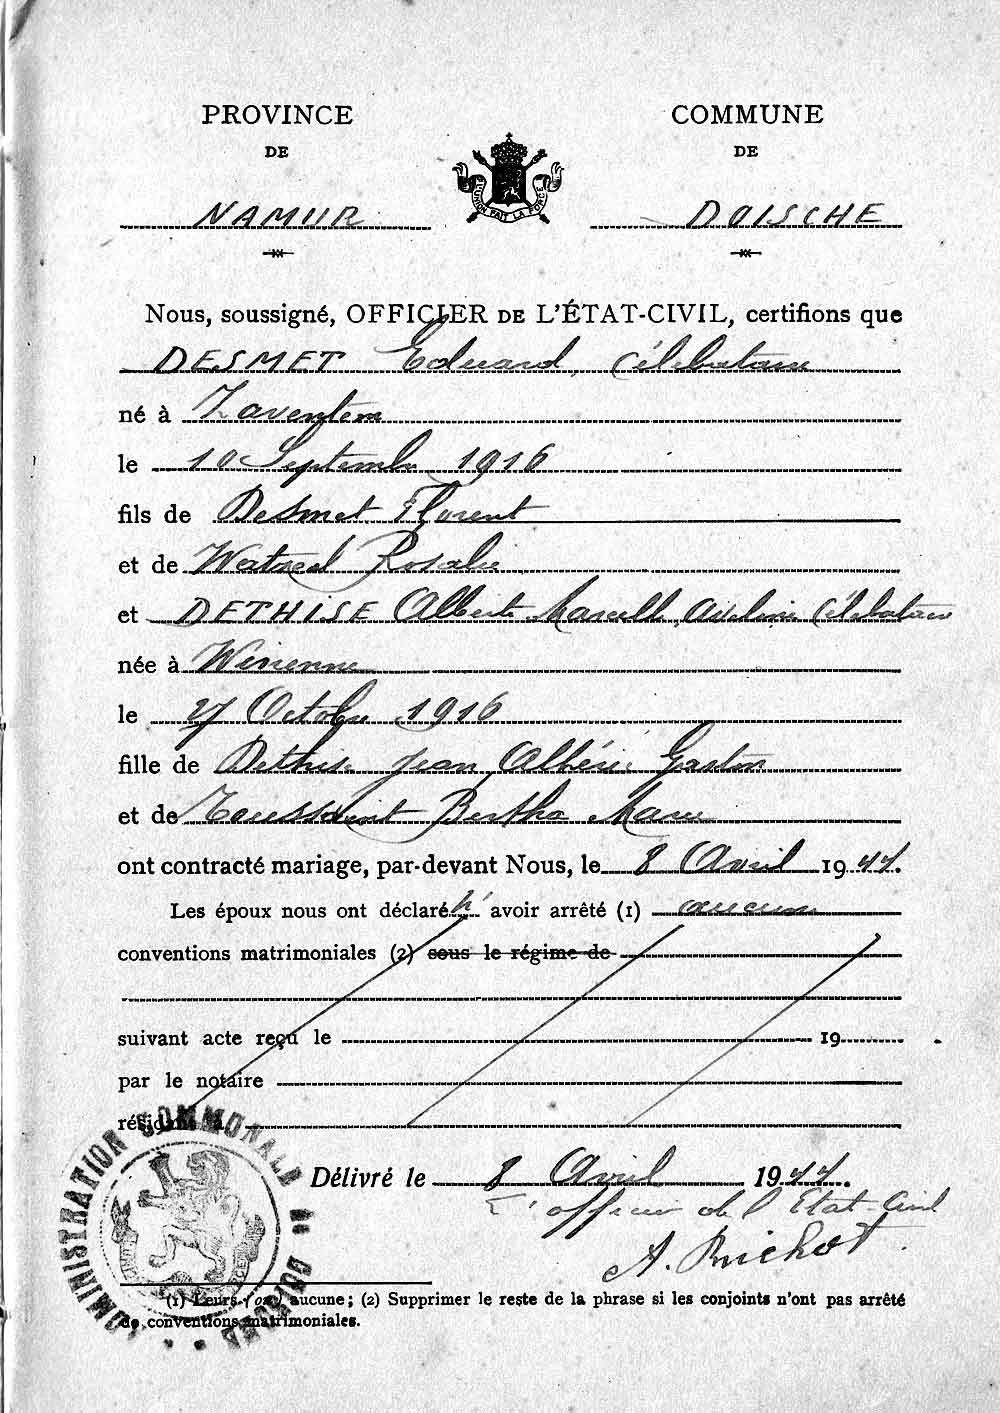 PROVINCE
DE
NAMUR
COMMUNE
DE
DOISCHE
L'UNION FAIT LA FORCE
Nous, soussigné, OFFICIER DE L'ÉTAT-CIVIL, certifions que
DESMET Edouard, Célibataire
né à Zaventem
le 10 Septembre 1916
fils de Desmet Florent
et de Rosalie
et DETHISE Alberte Marcelle Célibataire
née à Winenne
le 27 Octobre 1916
fille de Dethise Jean Albéric Gaston
et de Toussaint Bertha Marie
ont contracté mariage, par-devant Nous, le 8 Avril 1944.
Les époux nous ont déclaré n' avoir arrêté (1) aucune
conventions matrimoniales (2) sous le régime de
suivant acte reçu le 19
par le notaire
résidant à
Délivré le 8 Avril 1944.
L'officier de l'Etat-Civil
A.
ADMINISTRATION COMMUNALE DE DOISCHE
(1) Leurs ou aucune; (2) Supprimer le reste de la phrase si les conjoints n'ont pas arrêté
de conventions matrimoniales.